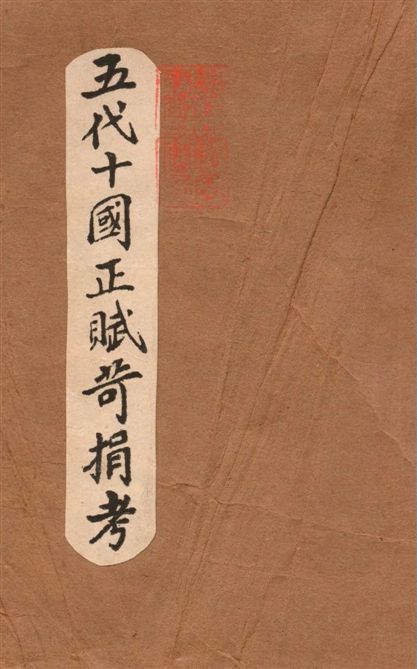 五代十國正賦苛捐考